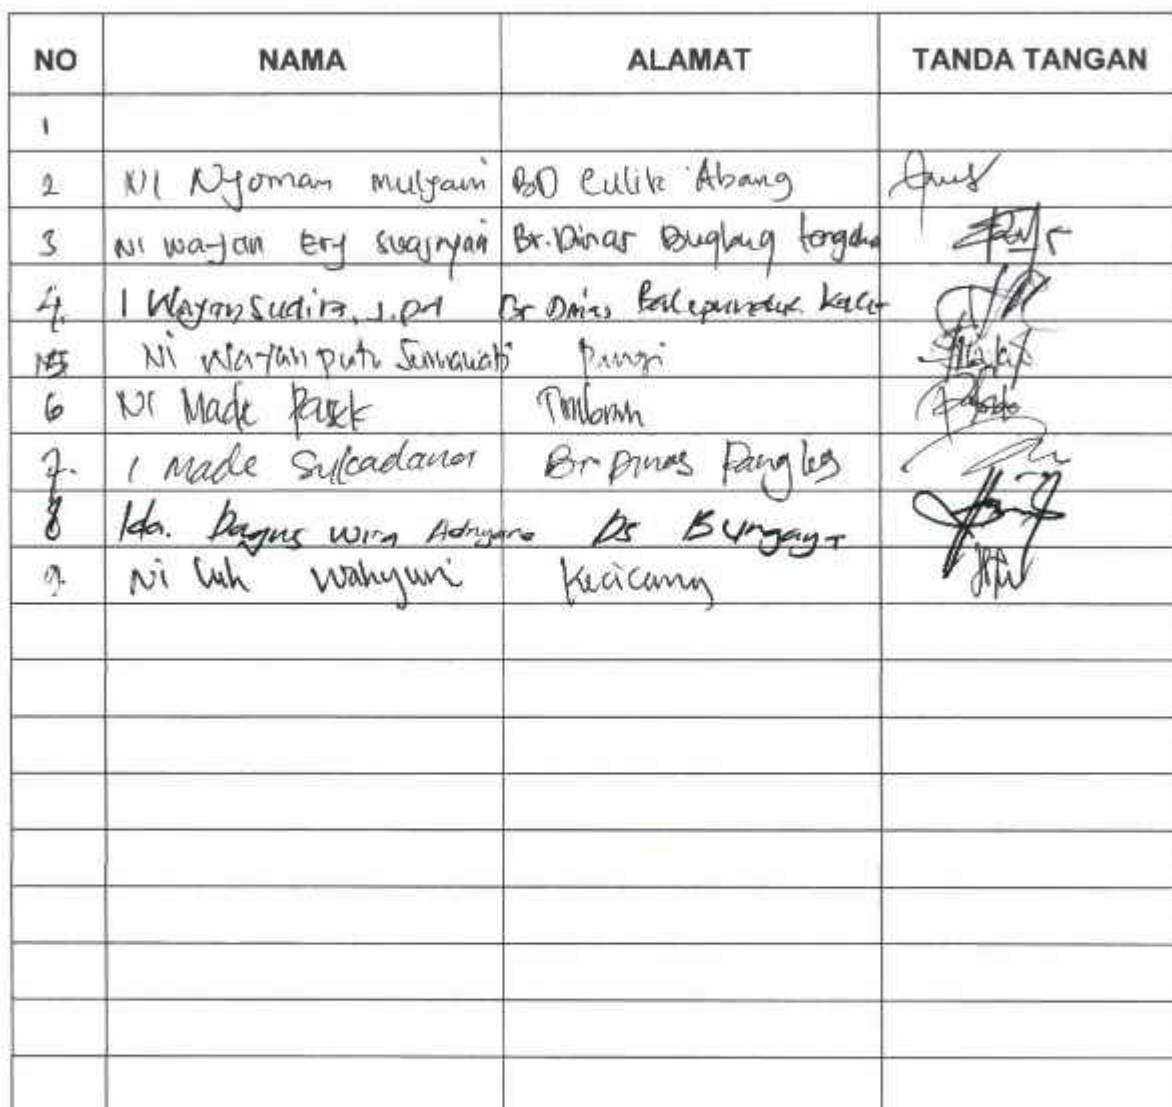 NO NAMA ALAMAT TANDA TANGAN
1
2 Ni Nyoman mulyani BD Culik Abang
3 Ni wayan Ery swasnyari Br. Dinas Bugbug tengah
4. I Wayan Sudira, S.pd Br Dinas Kaler
5 Ni Wayan putu Sumawati
6 Ni Made Pasek Timbrah
7. I Made Sukadana Br Dinas Pangleg
8 Ida. Bagus Wira Adnyana Ds Bungaya
9. Ni Luh Wahyuni Kecicang